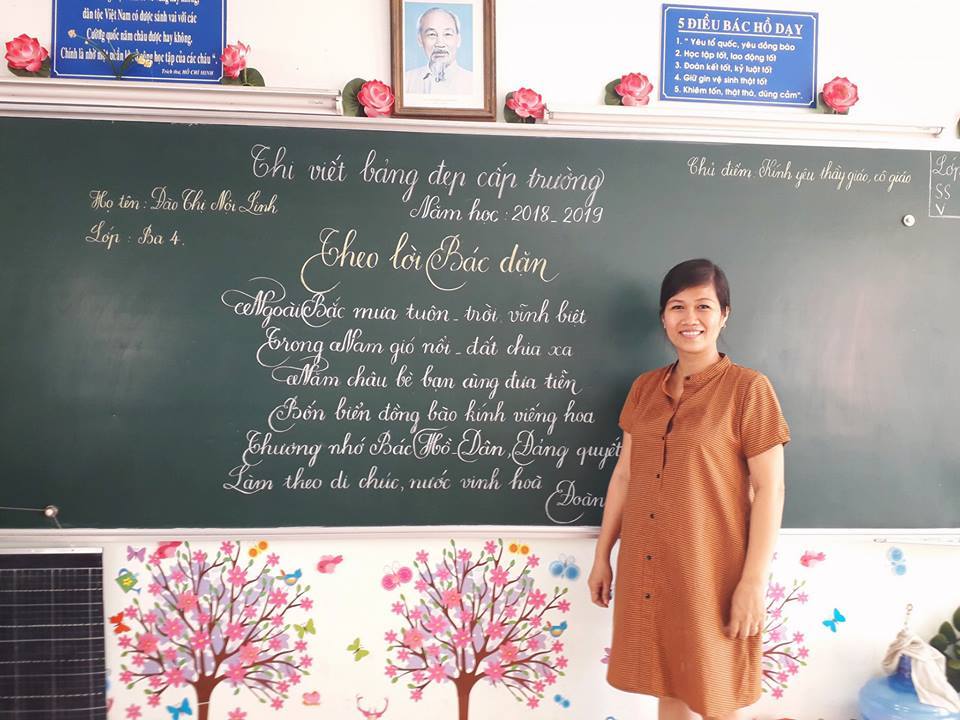 dân tộc Việt Nam có được sánh vai với các
Cường quốc năm châu được hay không.
Chính là nhờ một phần ở công học tập của các cháu "
Trích thư, HỒ CHÍ MINH
5 ĐIỀU BÁC HỒ DẠY
1. " Yêu tổ quốc, yêu đồng bào
2. Học tập tốt, lao động tốt
3. Đoàn kết tốt, kỷ luật tốt
4. Giữ gìn vệ sinh thật tốt
5. Khiêm tốn, thật thà, dũng cảm".
Thi viết bảng đẹp cấp trường
Năm học : 2018 - 2019
Chủ điểm : Kính yêu thầy giáo, cô giáo
Lớp
SS
V
Họ tên : Đào Thị Nôi Linh
Lớp : Ba 4.
Theo lời Bác dặn
Ngoài Bắc mưa tuôn - trời vĩnh biệt
Trong Nam gió nổi - đất chia xa
Năm châu bè bạn cùng đưa tiễn
Bốn biển đồng bào kính viếng hoa
Thương nhớ Bác Hồ - Dân, Đảng quyết
Làm theo di chúc, nước vinh hoà
Đoàn